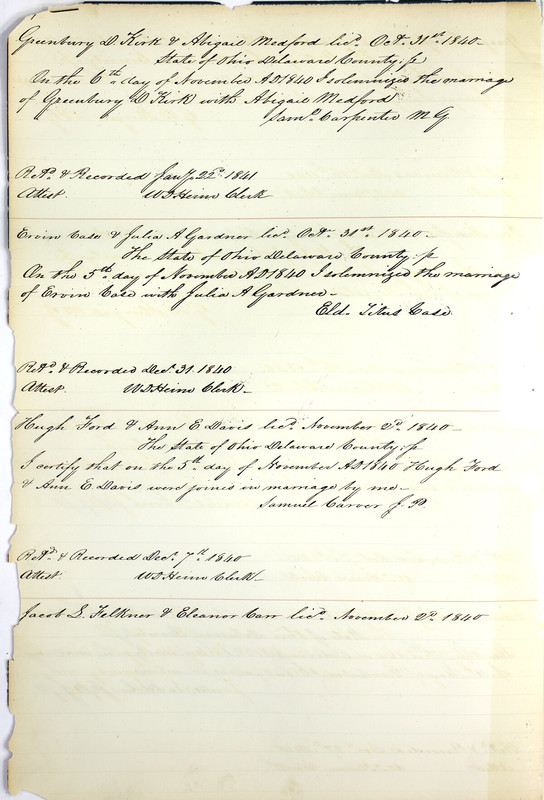 Greenbury D. Kirk & Abigail Medford licd. Oct. 31st. 1840-
State of Ohio Delaware County: ss
On the 6th. day of November AD 1840 I solemnized the marriage
of Greenbury D Kirk with Abigail Medford
Saml. Carpenter M G
Retd. & Recorded Jany. 22d. 1841
Attest. W D Heim Clerk
Ervin Case & Julia A Gardner licd. Octr. 31st. 1840-
The State of Ohio Delaware County: ss
On the 5th. day of November AD 1840 I solemnized the marriage
of Ervin Case with Julia A Gardner-
Eld. Titus Case
Retd. & Recorded Decr. 31. 1840
Attest W D Heim Clerk-
Hugh Ford & Ann E Davis licd. November 2d. 1840-
The State of Ohio Delaware County: ss
I certify that on the 5th. day of November AD 1840 Hugh Ford
& Ann E. Davis were joined in marriage by me-
Samuel Carver J. P.
Retd. & Recorded Decr. 7th. 1840
Attest. W D Heim Clerk-
Jacob S. Felkner & Eleanor Carr licd. November 2d. 1840